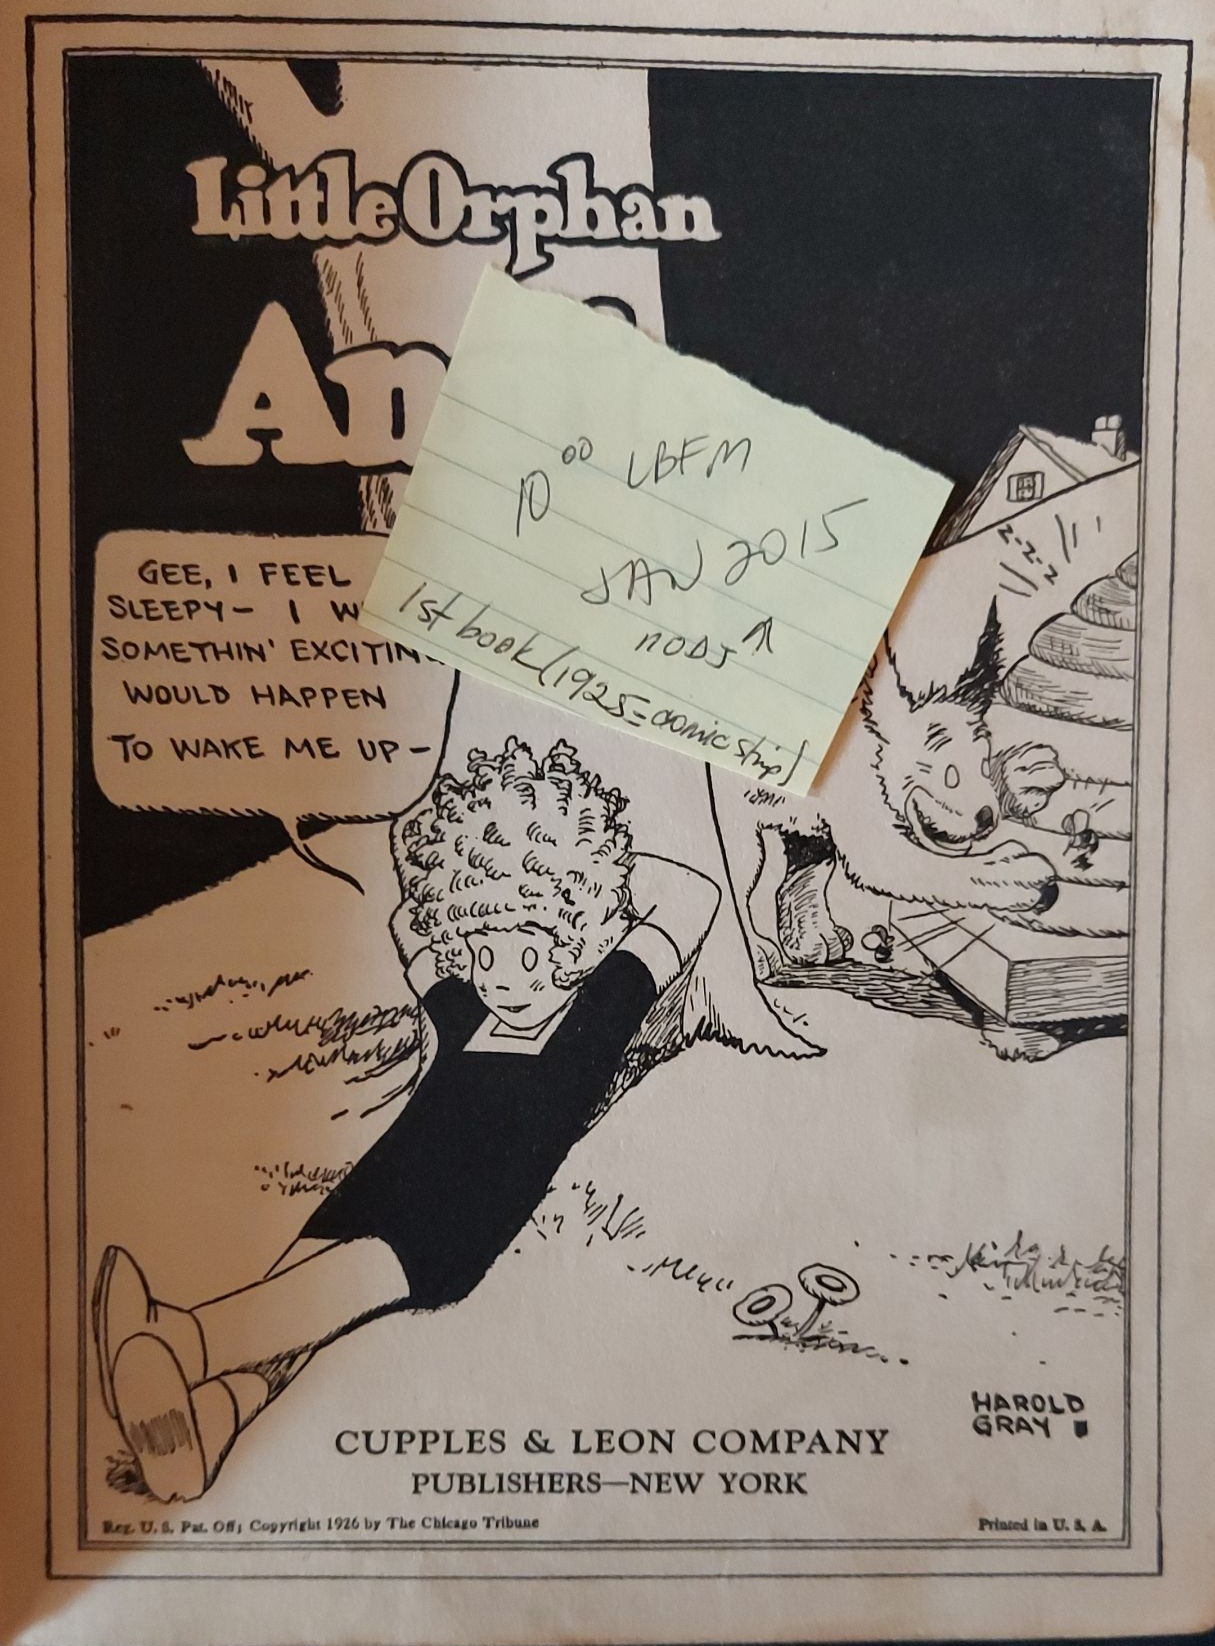 Little Orphan
An
10 00 LBFM
JAN 2015
1st book (1925 = comic strip)
GEE, I FEEL
SLEEPY- I W
SOMETHIN' EXCITIN
WOULD HAPPEN
TO WAKE ME UP-
Z-Z-Z
HAROLD
GRAY
CUPPLES & LEON COMPANY
PUBLISHERS—NEW YORK
Reg. U. S. Pat. Off; Copyright 1926 by The Chicago Tribune
Printed in U. S. A.